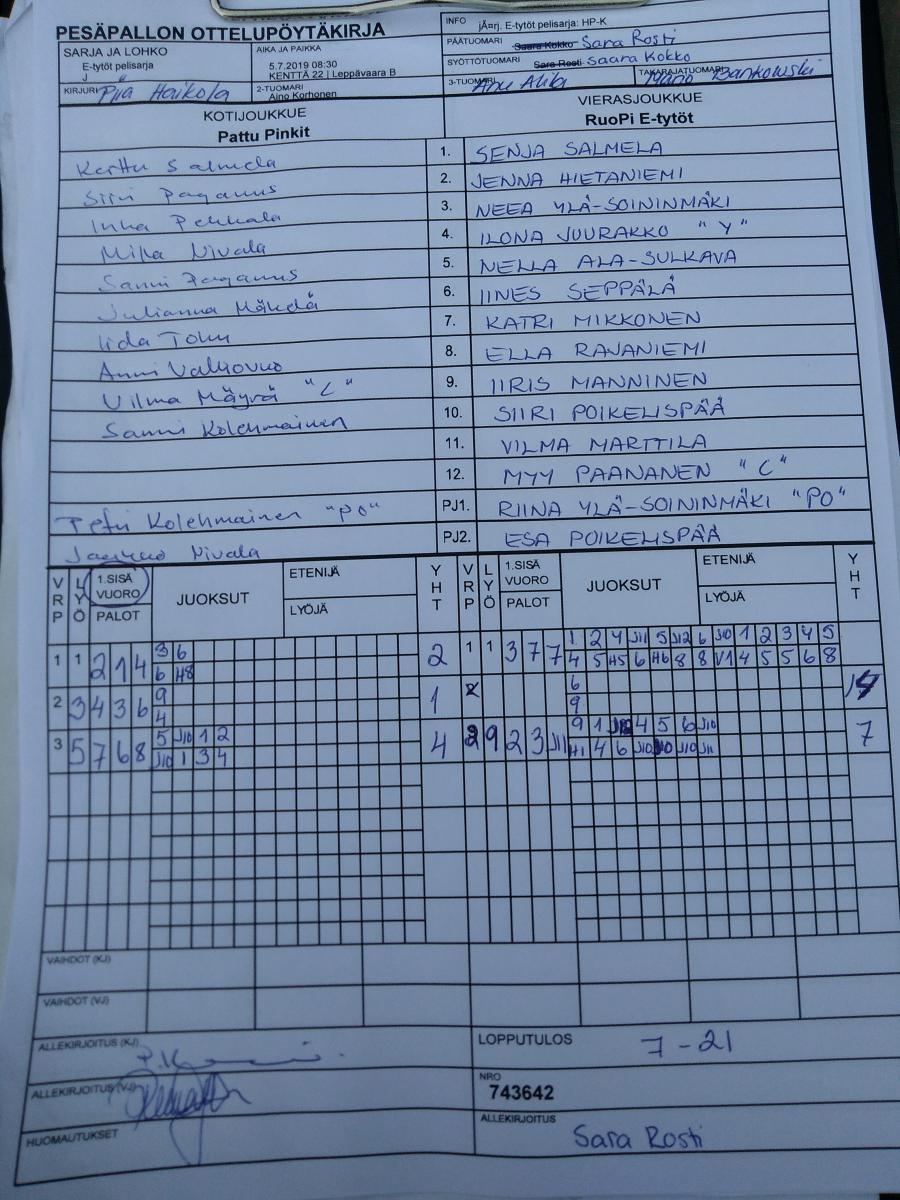 PESÄPALLON OTTELUPÖYTÄKIRJA
INFO jÃ¤rj. E-tytöt pelisarja: HP-K
SARJA JA LOHKO
E-tytöt pelisarja
J
AIKA JA PAIKKA
5.7.2019 08:30
KENTTÄ 22 | Leppävaara B
PÄÄTUOMARI Saara Kokko Sara Rosti
SYÖTTÖTUOMARI Sara Rosti Saara Kokko
KIRJURI Piia Haikola
2-TUOMARI
Aino Korhonen
3-TUOMARI
TAKARAJATUOMARI
KOTIJOUKKUE
Pattu Pinkit
VIERASJOUKKUE
RuoPi E-tytöt
Kerttu Salmela 1. SENJA SALMELA
Siiri Paganus 2. JENNA HIETANIEMI
Inka Pekkala 3. NEEA YLÄ-SOININMÄKI
Milla Nivala 4. ILONA JUURAKKO "Y"
Sanni Paganus 5. NELLA ALA-SULKAVA
Julianna Mäkelä 6. IINES SEPPÄLÄ
Iida 7. KATRI MIKKONEN
Anni 8. ELLA RAJANIEMI
Vilma Mäyrä "C" 9. IIRIS MANNINEN
Sanni Kolehmainen 10. SIIRI POIKELISPÄÄ
11. VILMA MARTTILA
12. MYY PAANANEN "C"
Petri Kolehmainen "PO" PJ1. RIINA YLÄ-SOININMÄKI "PO"
Nivala PJ2. ESA POIKELISPÄÄ
VRP LYÖ 1.SISÄ VUORO PALOT JUOKSUT ETENIJÄ LYÖJÄ YHT VRP LYÖ 1.SISÄ VUORO PALOT JUOKSUT ETENIJÄ LYÖJÄ YHT
3 6 1 2 4 J11 5 J12 6 J10 1 2 3 4 5
1 1 2 1 4 2 1 1 3 7 7
6 H8 4 5 H5 6 H6 8 8 V1 4 5 5 6 8
9 6
2 3 4 3 6 1 2
4 9
5 J10 1 2 9 1 4 5 6 J10
3 5 7 6 8 4 9 2 3 J11 7
J10 1 3 4 H1 4 6 J10 J10 J11
VAIHDOT (KJ)
VAIHDOT (VJ)
ALLEKIRJOITUS (KJ)
LOPPUTULOS 7 - 21
ALLEKIRJOITUS (VJ)
NRO
743642
HUOMAUTUKSET
ALLEKIRJOITUS
Sara Rosti